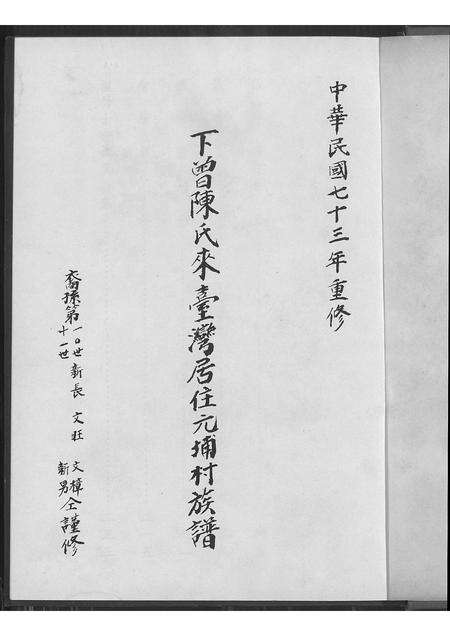 中華民國七十三年重修
下曾陳氏來臺灣居住元埔村族譜
裔孫第一0世新長 文旺 文樟仝謹修
十一世 新男